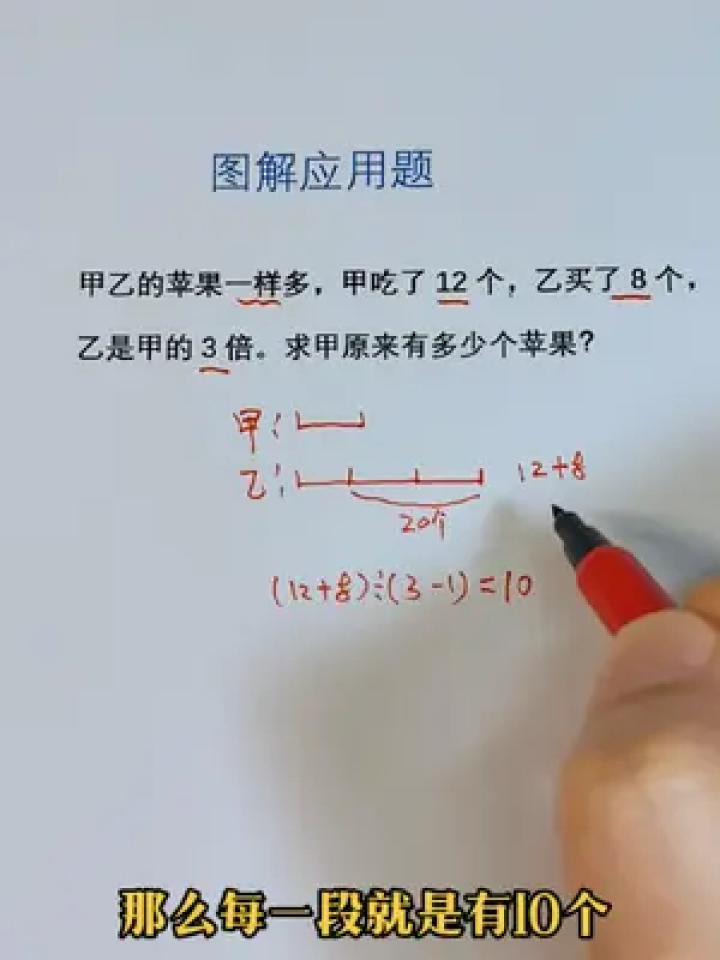 图解应用题
甲乙的苹果一样多，甲吃了 12 个，乙买了 8 个，
乙是甲的 3 倍。求甲原来有多少个苹果？
甲：
乙：
12+8
20个
(12+8)÷(3-1)=10
那么每一段就是有10个